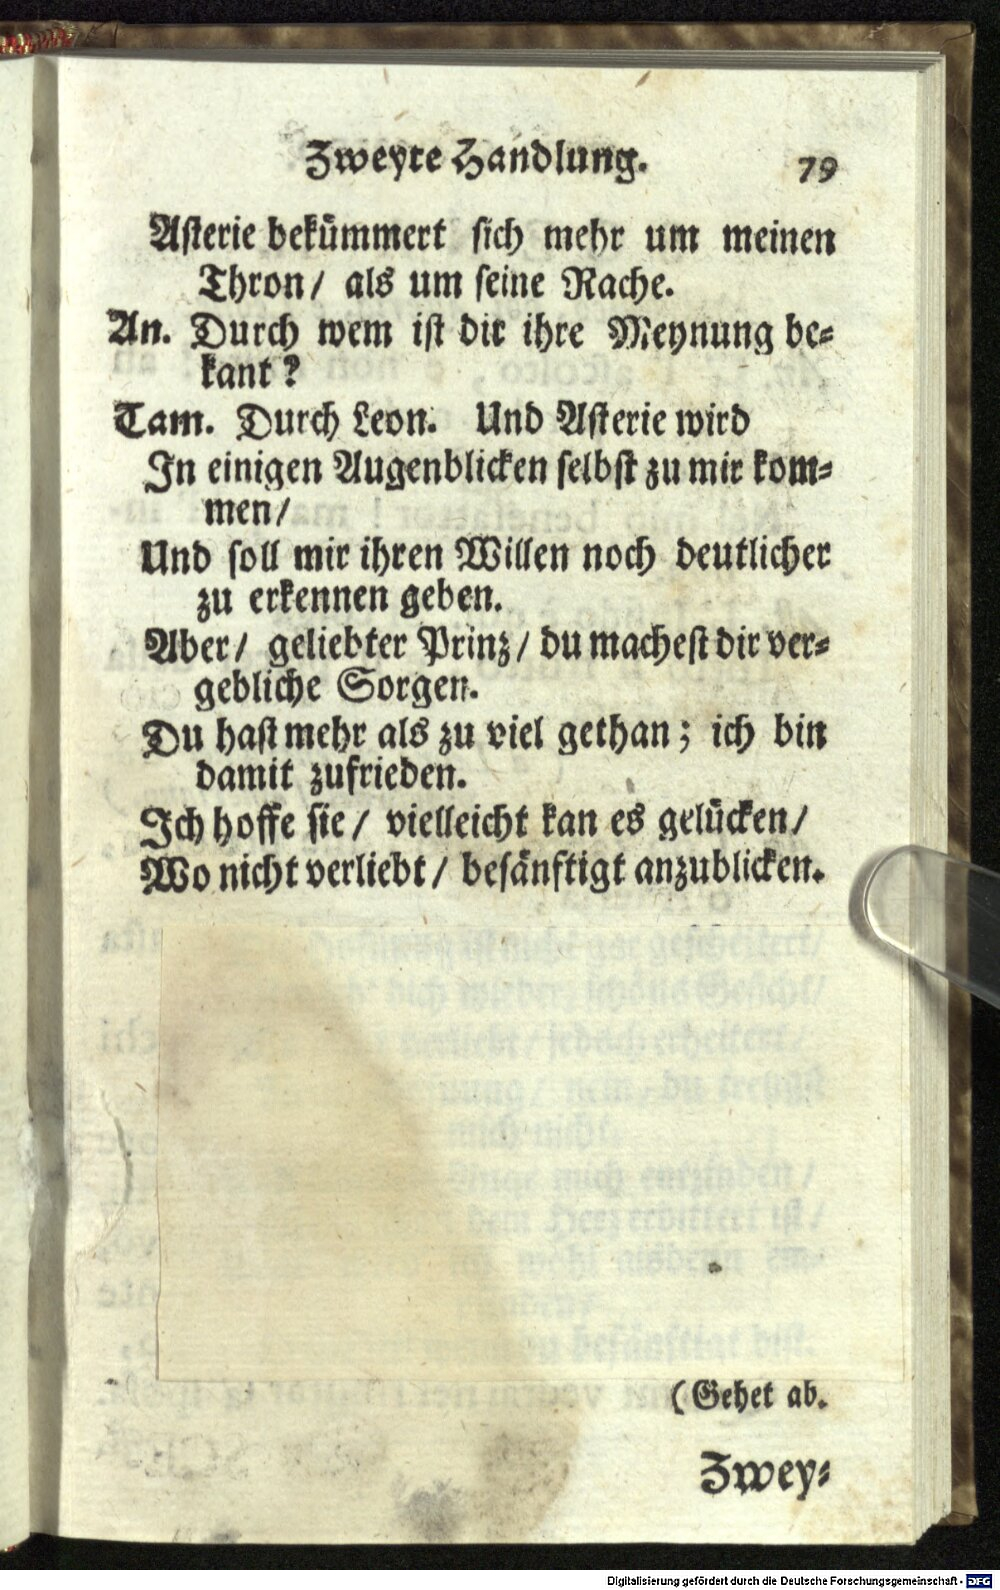 Zweyte Handlung. 79
Asterie bekümmert sich mehr um meinen
Thron/ als um seine Rache.
An. Durch wem ist dir ihre Meynung be-
kant?
Tam. Durch Leon. Und Asterie wird
In einigen Augenblicken selbst zu mir kom-
men/
Und soll mir ihren Willen noch deutlicher
zu erkennen geben.
Aber/ geliebter Prinz/ du machest dir ver-
gebliche Sorgen.
Du hast mehr als zu viel gethan; ich bin
damit zufrieden.
Ich hoffe sie/ vielleicht kan es gelücken/
Wo nicht verliebt/ besänftigt anzublicken.
(Gehet ab.
Zwey-
Digitalisierung gefördert durch die Deutsche Forschungsgemeinschaft - DFG